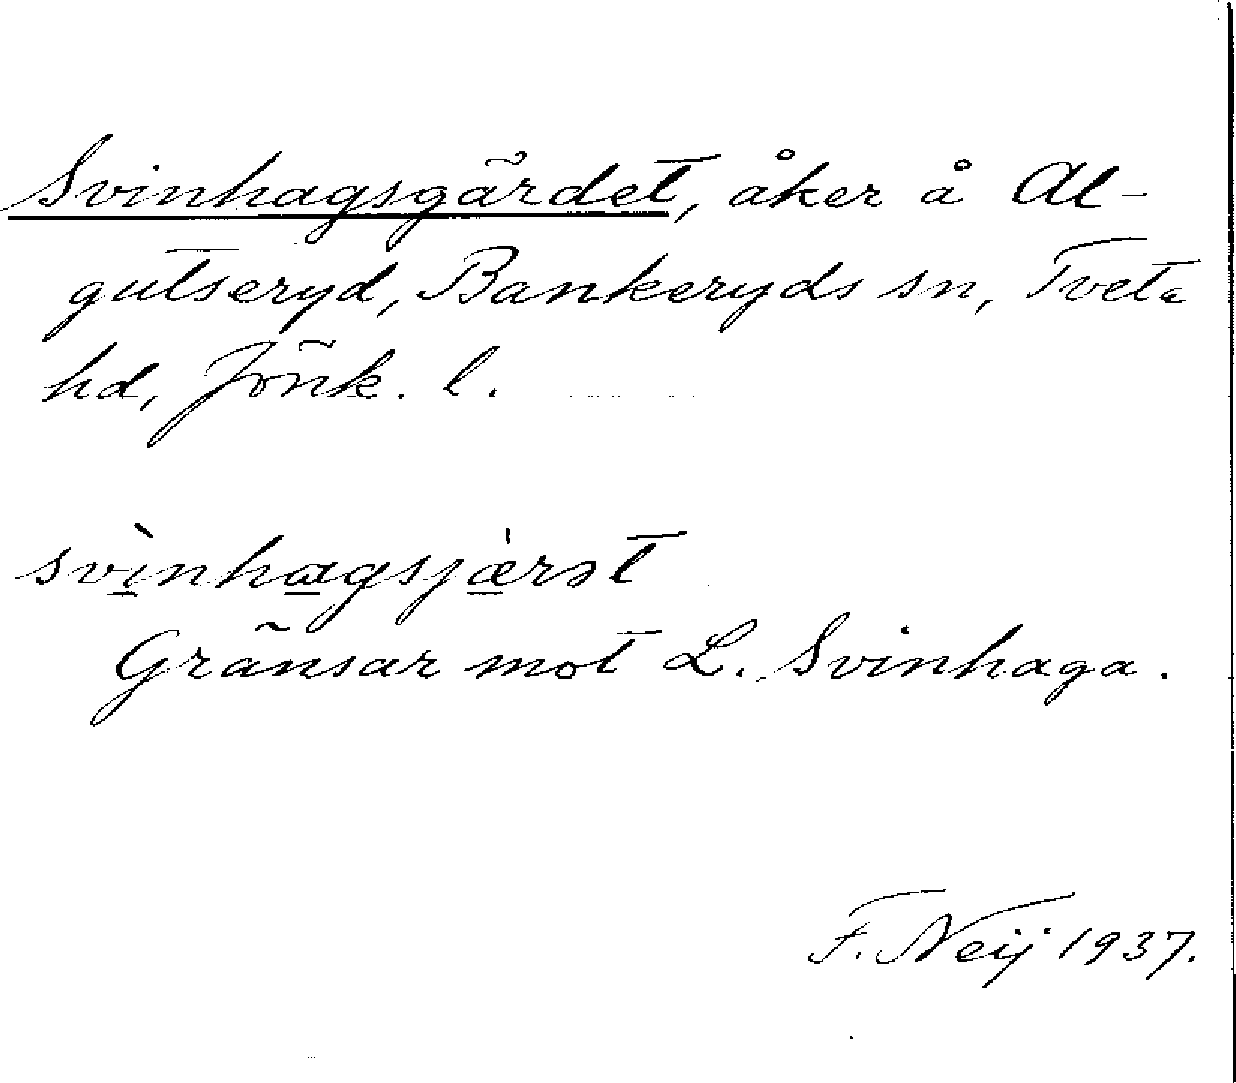 Svinhagsgärdet, åker å Al-
gutseryd, Bankeryds sn, Tveta
hd, Jönk. l.
svì̲nha̲gsjæ̲̍rət
Gränsar mot L. Svinhaga.
F. Neij 1937.